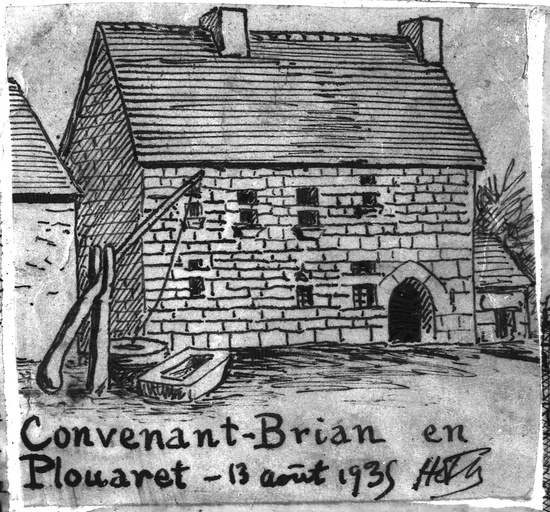 Convenant-Brian en
Plouaret - 13 août 1935